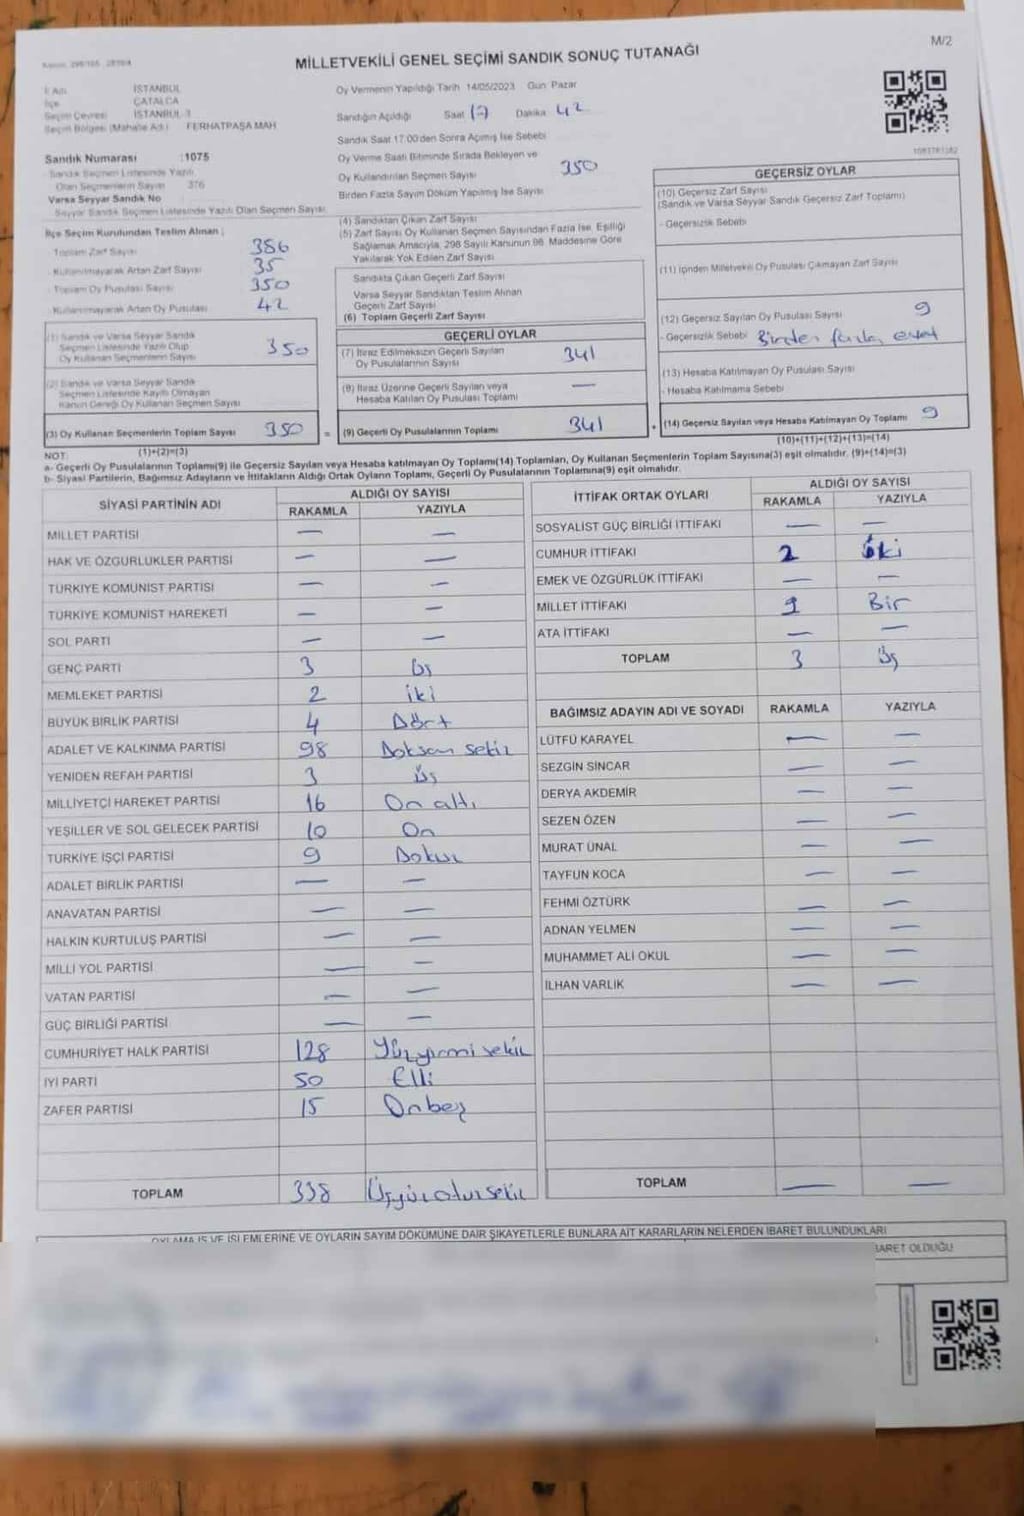 M/2
MİLLETVEKİLİ GENEL SEÇİMİ SANDIK SONUÇ TUTANAĞI
İSTANBUL
İlçe ÇATALCA
Seçim Çevresi İSTANBUL 3
Seçim Bölgesi (Mahalle Adı) FERHATPAŞA MAH
Sandık Numarası :1075
Sandık Seçmen Listesinde Yazılı
Olan Seçmenlerin Sayısı 376
Varsa Seyyar Sandık No
Seyyar Sandık Seçmen Listesinde Yazılı Olan Seçmen Sayısı
İlçe Seçim Kurulundan Teslim Alınan ;
Toplam Zarf Sayısı 386
Kullanılmayarak Artan Zarf Sayısı 35
Toplam Oy Pusulası Sayısı 350
Kullanılmayarak Artan Oy Pusulası 42
(1) Sandık ve Varsa Seyyar Sandık
Seçmen Listesinde Yazılı Olup
Oy Kullanan Seçmenlerin Sayısı 350
(2) Sandık ve Varsa Seyyar Sandık
Seçmen Listesinde Kayıtlı Olmayan
Kanun Gereği Oy Kullanan Seçmen Sayısı
(3) Oy Kullanan Seçmenlerin Toplam Sayısı 350
Oy Vermenin Yapıldığı Tarih 14/05/2023 Gün Pazar
Sandığın Açıldığı Saat 17 Dakika 42
Sandık Saat 17:00'den Sonra Açılmış İse Sebebi
Oy Verme Saati Bitiminde Sırada Bekleyen ve
Oy Kullandırılan Seçmen Sayısı 350
Birden Fazla Sayım Döküm Yapılmış İse Sayısı
(4) Sandıktan Çıkan Zarf Sayısı
(5) Zarf Sayısı Oy Kullanan Seçmen Sayısından Fazla İse, Eşitliği
Sağlamak Amacıyla, 298 Sayılı Kanunun 98. Maddesine Göre
Yakılarak Yok Edilen Zarf Sayısı
Sandıkta Çıkan Geçerli Zarf Sayısı
Varsa Seyyar Sandıktan Teslim Alınan
Geçerli Zarf Sayısı
(6) Toplam Geçerli Zarf Sayısı
GEÇERLİ OYLAR
(7) İtiraz Edilmeksizin Geçerli Sayılan
Oy Pusulalarının Sayısı 341
(8) İtiraz Üzerine Geçerli Sayılan veya
Hesaba Katılan Oy Pusulası Toplamı —
= (9) Geçerli Oy Pusulalarının Toplamı 341
1083781382
GEÇERSİZ OYLAR
(10) Geçersiz Zarf Sayısı
(Sandık ve Varsa Seyyar Sandık Geçersiz Zarf Toplamı)
- Geçersizlik Sebebi
(11) İçinden Milletvekili Oy Pusulası Çıkmayan Zarf Sayısı
(12) Geçersiz Sayılan Oy Pusulası Sayısı 9
- Geçersizlik Sebebi Birden fazla evet
(13) Hesaba Katılmayan Oy Pusulası Sayısı
- Hesaba Katılmama Sebebi
+ (14) Geçersiz Sayılan veya Hesaba Katılmayan Oy Toplamı 9
NOT: (1)+(2)=(3) (10)+(11)+(12)+(13)=(14)
a- Geçerli Oy Pusulalarının Toplamı(9) ile Geçersiz Sayılan veya Hesaba katılmayan Oy Toplamı(14) Toplamları, Oy Kullanan Seçmenlerin Toplam Sayısına(3) eşit olmalıdır. (9)+(14)=(3)
b- Siyasi Partilerin, Bağımsız Adayların ve İttifakların Aldığı Ortak Oyların Toplamı, Geçerli Oy Pusulalarının Toplamına(9) eşit olmalıdır.
SİYASİ PARTİNİN ADI ALDIĞI OY SAYISI
RAKAMLA YAZIYLA
MİLLET PARTİSİ — —
HAK VE ÖZGÜRLÜKLER PARTİSİ — —
TÜRKİYE KOMÜNİST PARTİSİ — —
TÜRKİYE KOMÜNİST HAREKETİ — —
SOL PARTİ — —
GENÇ PARTİ 3 Üş
MEMLEKET PARTİSİ 2 iki
BÜYÜK BİRLİK PARTİSİ 4 Dört
ADALET VE KALKINMA PARTİSİ 98 Doksan sekiz
YENİDEN REFAH PARTİSİ 3 Üş
MİLLİYETÇİ HAREKET PARTİSİ 16 On altı
YEŞİLLER VE SOL GELECEK PARTİSİ 10 On
TÜRKİYE İŞÇİ PARTİSİ 9 Dokuz
ADALET BİRLİK PARTİSİ — —
ANAVATAN PARTİSİ — —
HALKIN KURTULUŞ PARTİSİ — —
MİLLİ YOL PARTİSİ — —
VATAN PARTİSİ — —
GÜÇ BİRLİĞİ PARTİSİ — —
CUMHURİYET HALK PARTİSİ 128 Yüzyirmi sekiz
İYİ PARTİ 50 Elli
ZAFER PARTİSİ 15 Onbeş
TOPLAM 338 Üşyüzotuzsekiz
İTTİFAK ORTAK OYLARI ALDIĞI OY SAYISI
RAKAMLA YAZIYLA
SOSYALİST GÜÇ BİRLİĞİ İTTİFAKI — —
CUMHUR İTTİFAKI 2 iki
EMEK VE ÖZGÜRLÜK İTTİFAKI — —
MİLLET İTTİFAKI 1 Bir
ATA İTTİFAKI — —
TOPLAM 3 Üş
BAĞIMSIZ ADAYIN ADI VE SOYADI RAKAMLA YAZIYLA
LÜTFÜ KARAYEL — —
SEZGİN SİNCAR — —
DERYA AKDEMİR — —
SEZEN ÖZEN — —
MURAT ÜNAL — —
TAYFUN KOCA — —
FEHMİ ÖZTÜRK — —
ADNAN YELMEN — —
MUHAMMET ALİ OKUL — —
İLHAN VARLIK — —
TOPLAM — —
OYLAMA İŞ VE İŞLEMLERİNE VE OYLARIN SAYIM DÖKÜMÜNE DAİR ŞİKAYETLERLE BUNLARA AİT KARARLARIN NELERDEN İBARET BULUNDUKLARI
BARET OLDUĞU